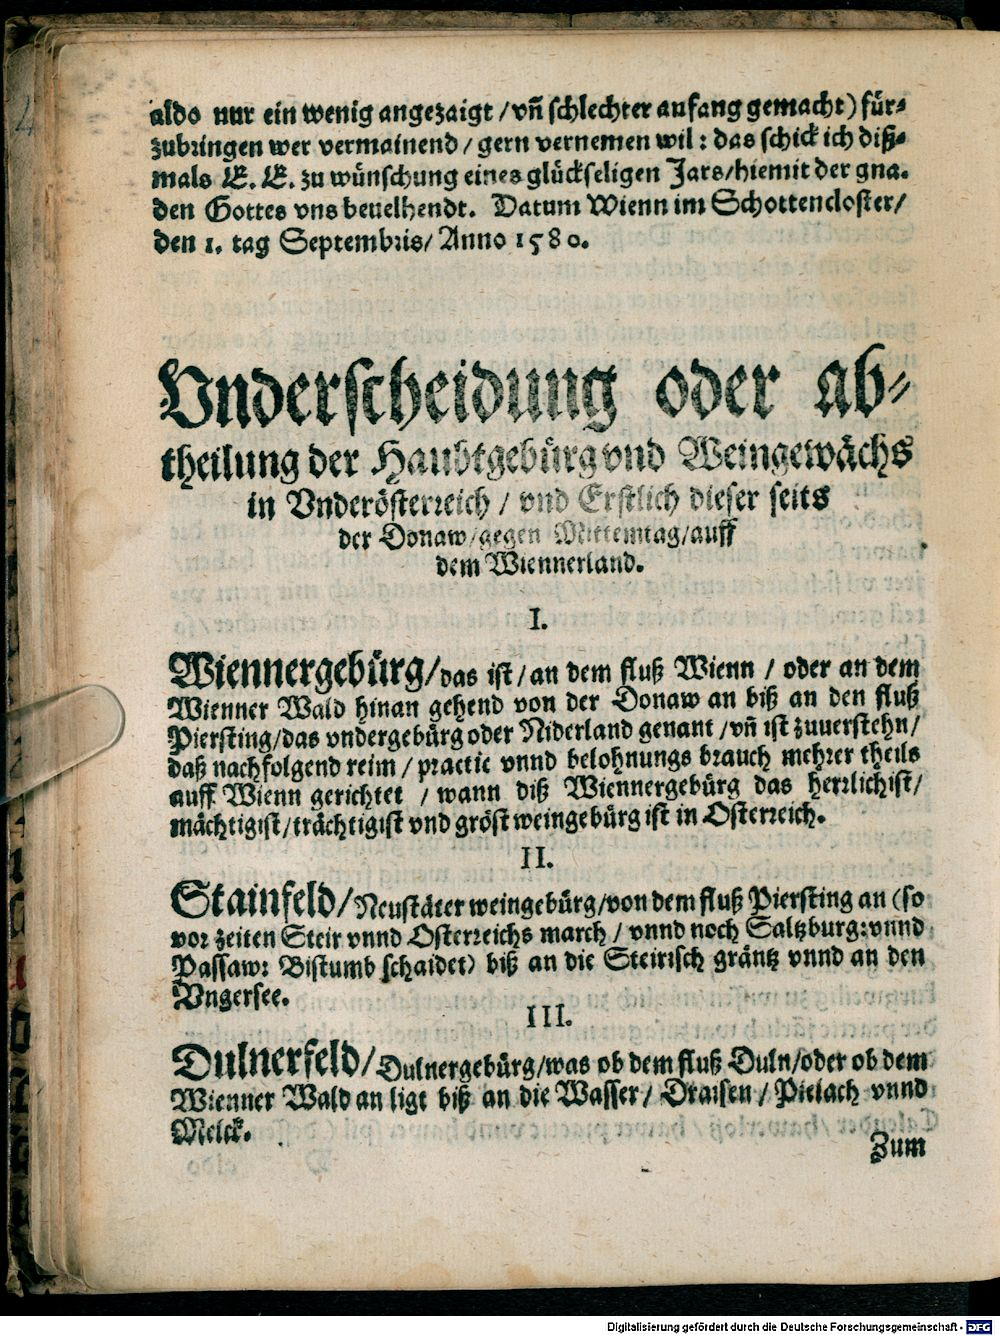 aldo nur ein wenig angezaigt / vñ schlechter anfang gemacht) für⸗
zubringen wer vermainend / gern vernemen wil : das schick ich diß⸗
mals E. E. zu wünschung eines glückseligen Jars / hiemit der gna⸗
den Gottes vns beuelhendt. Datum Wienn im Schottencloster /
den 1. tag Septembris / Anno 1580.
Vnderscheidung oder ab⸗
theilung der Haubtgebürg vnd Weingewächs
in Vnderösterreich / vnd Erstlich dieser seits
der Donaw / gegen Mittemtag / auff
dem Wiennerland.
I.
Wiennergebürg / das ist / an dem fluß Wienn / oder an dem
Wienner Wald hinan gehend von der Donaw an biß an den fluß
Piersting / das vndergebürg oder Niderland genant / vñ ist zuuerstehn /
daß nachfolgend reim / practic vnnd belohnungs brauch mehrer theils
auff Wienn gerichtet / wann diß Wiennergebürg das herrlichist /
mächtigist / trächtigist vnd gröst weingebürg ist in Osterreich.
II.
Stainfeld / Neustäter weingebürg / von dem fluß Piersting an (so
vor zeiten Steir vnnd Osterreichs march / vnnd noch Saltzburg: vnnd
Passaw: Bistumb schaidet) biß an die Steirisch gräntz vnnd an den
Vngersee.
III.
Dulnerfeld / Dulnergebürg / was ob dem fluß Duln / oder ob dem
Wienner Wald an ligt biß an die Wasser / Draisen / Pielach vnnd
Melck.
Zum
Digitalisierung gefördert durch die Deutsche Forschungsgemeinschaft - DFG